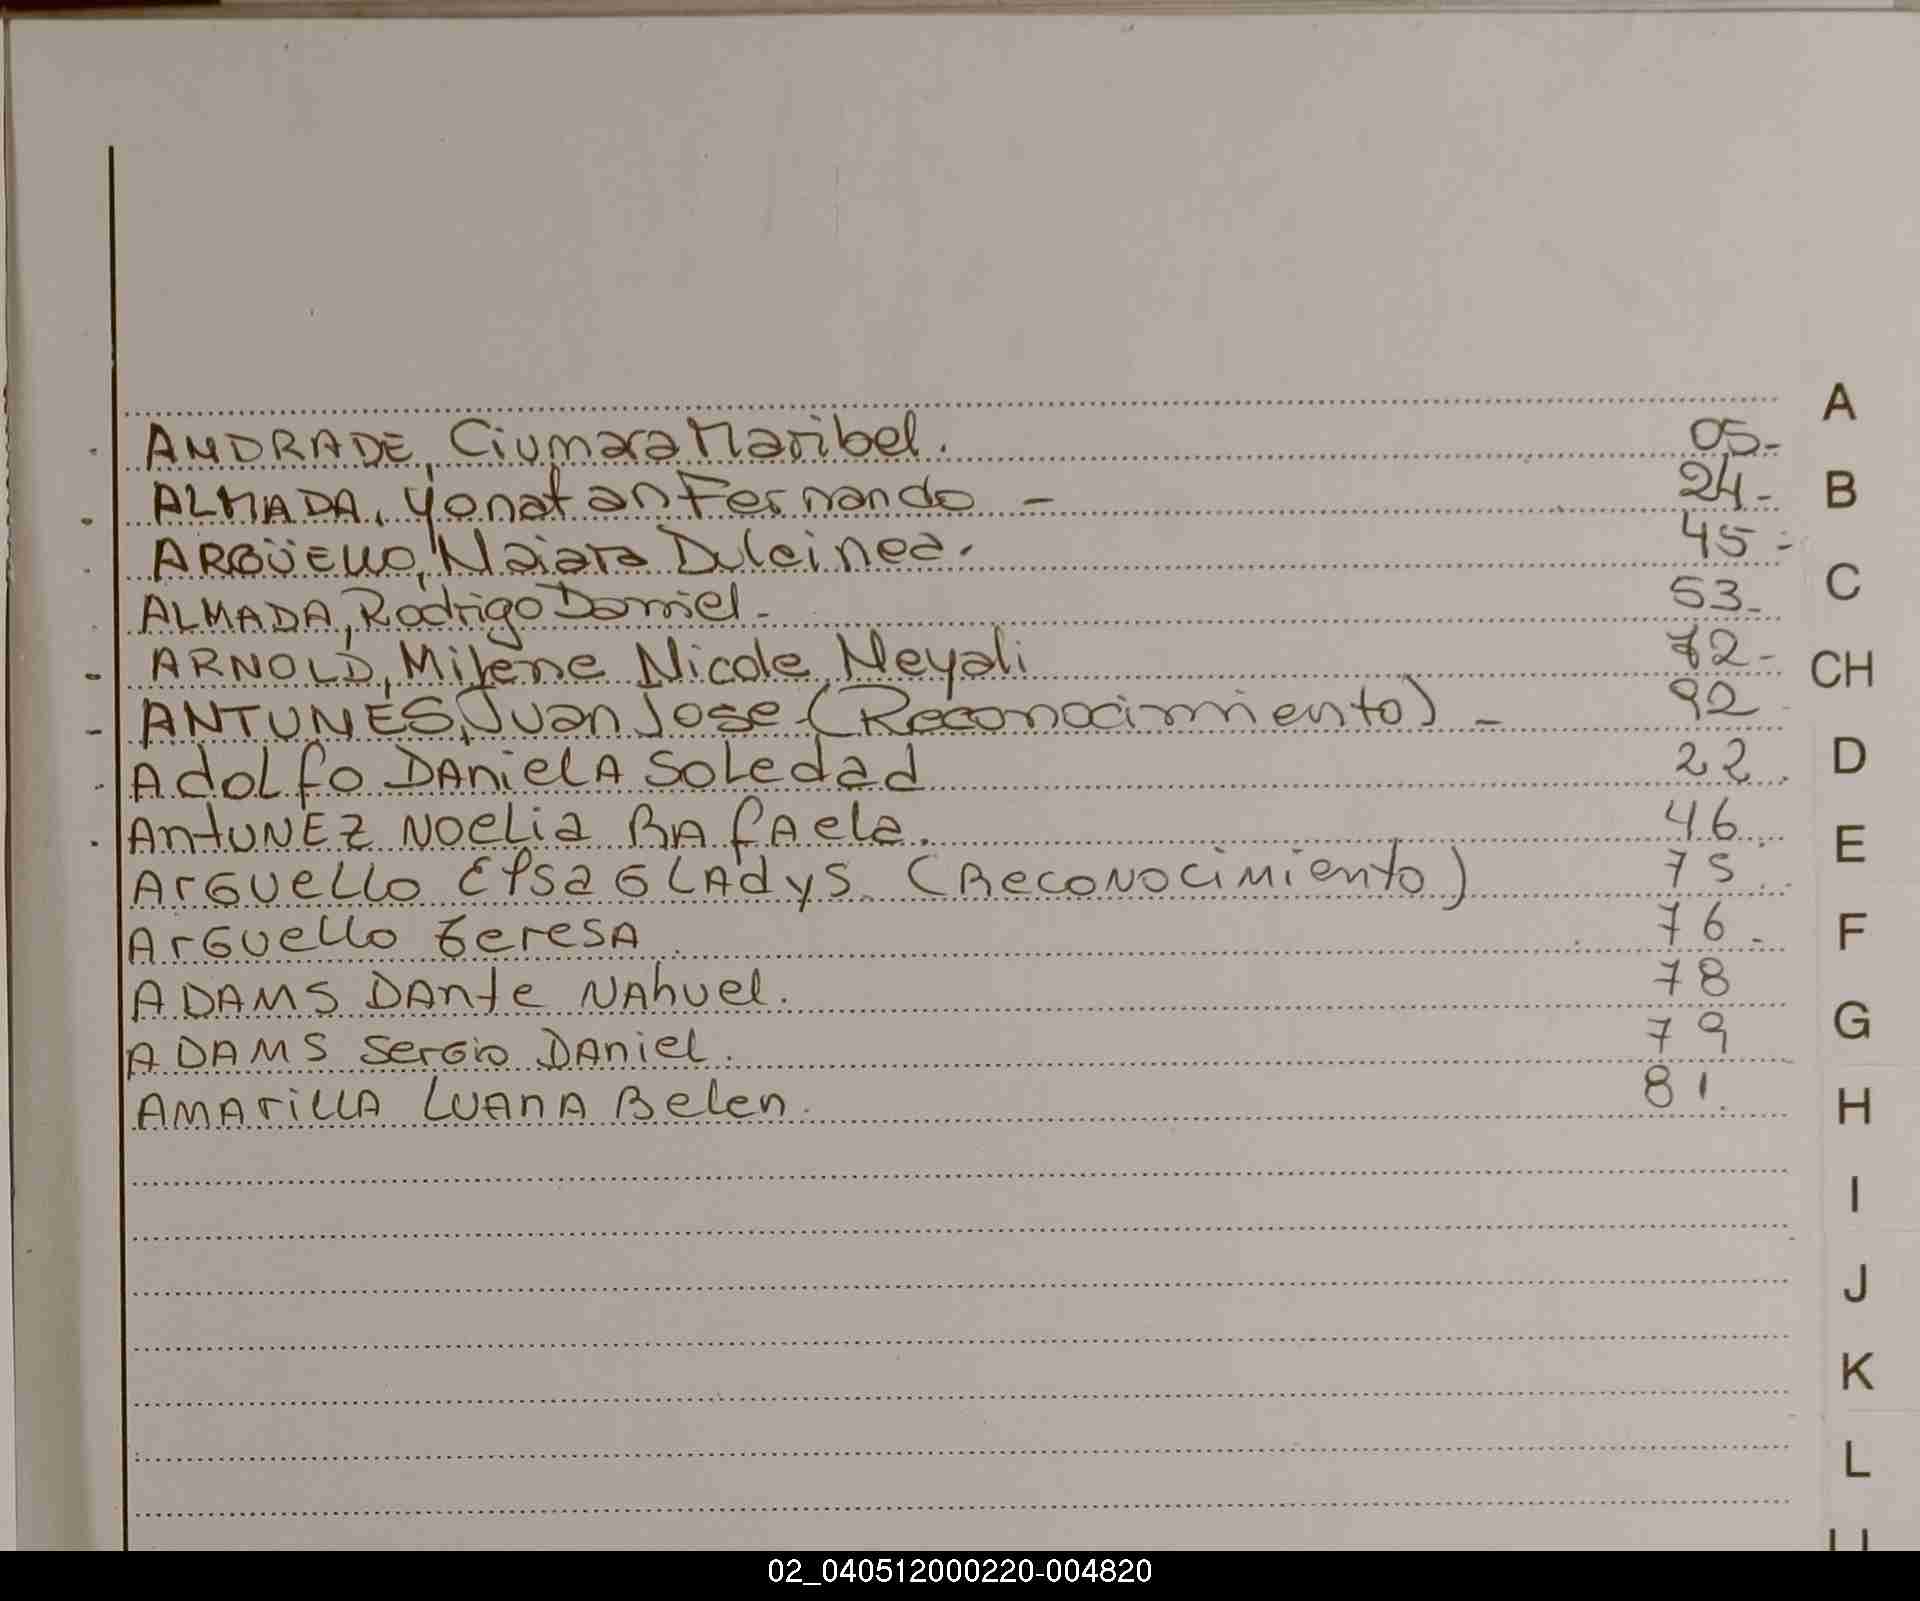 A
ANDRADE, Ciumara Maribel. 05.-
ALMADA, Yonatan Fernando - 24.-
B
ARGÜELLO, Naiara Dulcinea. 45.-
ALMADA, Rodrigo Daniel.- 53.-
C
ARNOLD, Milene Nicole Neyali 72.-
CH
ANTUNES, Juan Jose (Reconocimiento) - 92
Adolfo DAnielA Soledad 22.
D
AntUNEZ NOelia RAfAela. 46.
E
ArGuello Elsa GLAdyS. (Reconocimiento) 75.
ArGuello teresA. 76.
F
ADAMS DAnte NAhuel. 78
ADAMS SerGio DAniel. 79
G
AMArillA LuAnA Belen. 81.
H
I
J
K
L
02_040512000220-004820